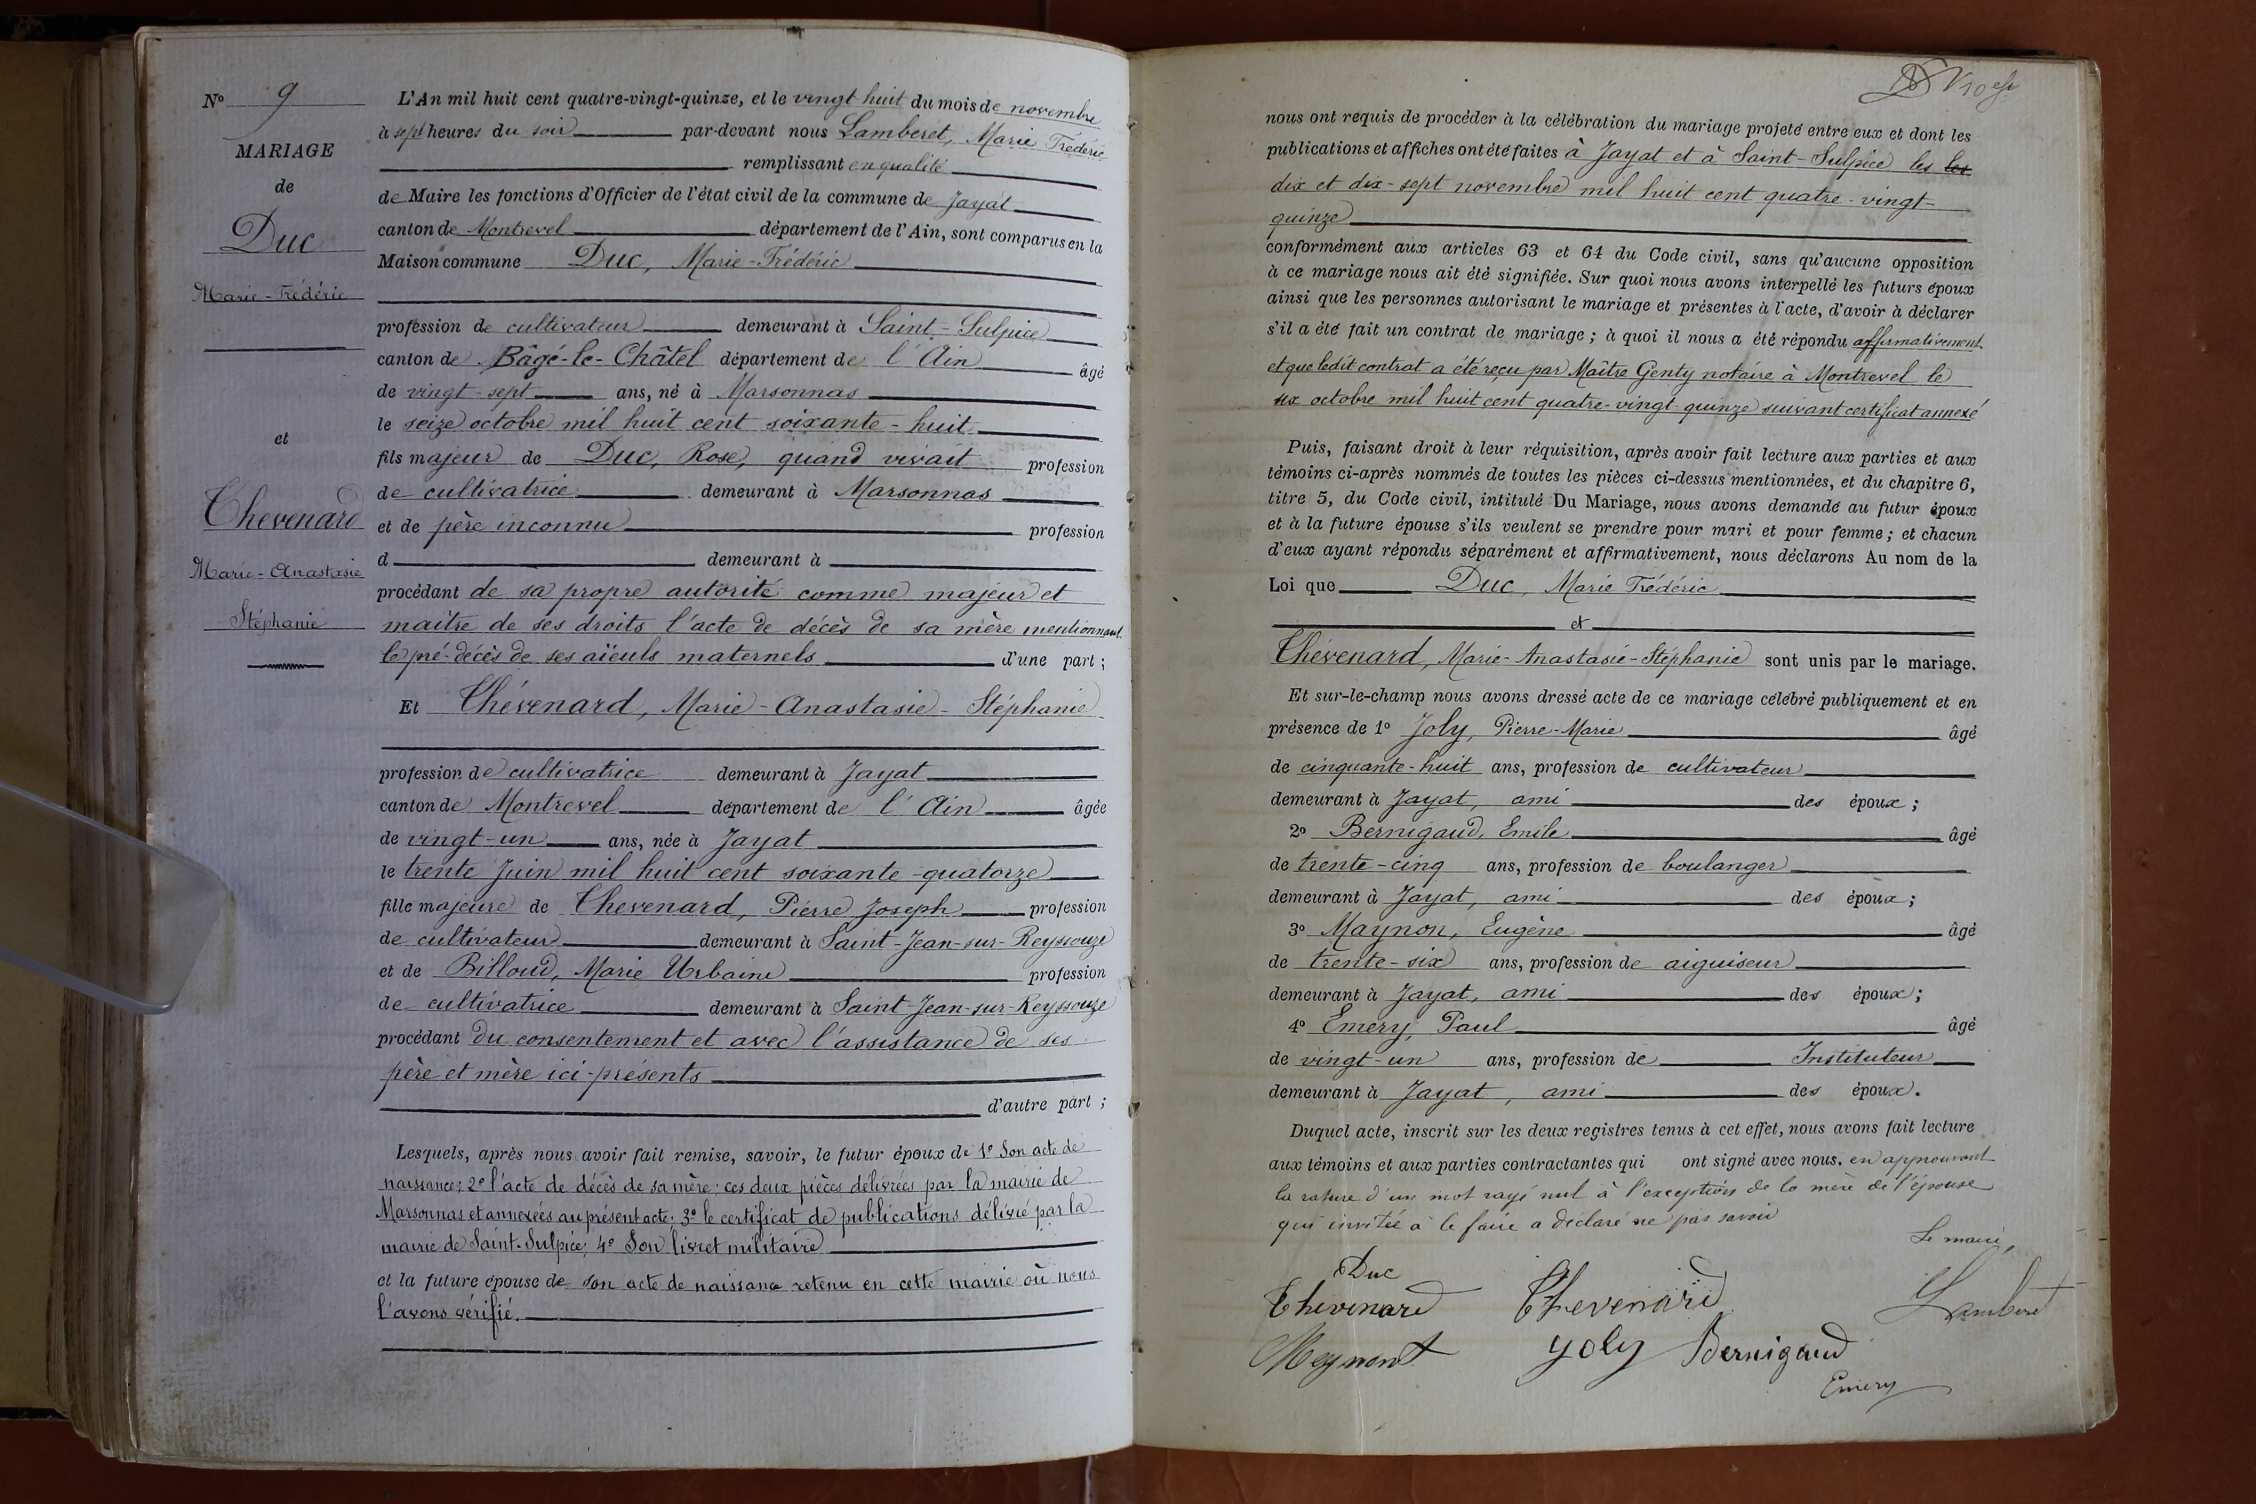 N° 9
MARIAGE
de
Duc
Marie-Frédéric
et
Thévenard
Marie-Anastasie
Stéphanie
L'An mil huit cent quatre-vingt-quinze, et le vingt huit du mois de novembre
à sept heures du soir par-devant nous Lamberet, Marie Frédéric
remplissant en qualité
de Maire les fonctions d'Officier de l'état civil de la commune de Jayat
canton de Montrevel département de l'Ain, sont comparus en la
Maison commune Duc, Marie-Frédéric
profession de cultivateur demeurant à Saint-Sulpice
canton de Bâgé-le-Châtel département de l'Ain âgé
de vingt-sept ans, né à Marsonnas
le seize octobre mil huit cent soixante-huit
fils majeur de Duc, Rose, quand vivait profession
de cultivatrice demeurant à Marsonnas
et de père inconnu profession
d demeurant à
procédant de sa propre autorité comme majeur et
maître de ses droits l'acte de décès de sa mère mentionnant
le pré-décès de ses aïeuls maternels d'une part ;
Et Thévenard, Marie-Anastasie-Stéphanie
profession de cultivatrice demeurant à Jayat
canton de Montrevel département de l'Ain âgée
de vingt-un ans, née à Jayat
le trente Juin mil huit cent soixante-quatorze
fille majeure de Thevenard, Pierre Joseph profession
de cultivateur demeurant à Saint-Jean-sur-Reyssouze
et de Billoud, Marie Urbaine profession
de cultivatrice demeurant à Saint-Jean-sur-Reyssouze
procédant du consentement et avec l'assistance de ses
père et mère ici-présents
d'autre part ;
Lesquels, après nous avoir fait remise, savoir, le futur époux de 1° Son acte de
naissance; 2° l'acte de décès de sa mère: ces deux pièces délivrées par la mairie de
Marsonnas et annexées au présent acte; 3° le certificat de publications délivré par la
mairie de Saint-Sulpice; 4° Son livret militaire
et la future épouse de son acte de naissance retenu en cette mairie où nous
l'avons vérifié.
nous ont requis de procéder à la célébration du mariage projeté entre eux et dont les
publications et affiches ont été faites à Jayat et à Saint-Sulpice les les
dix et dix-sept novembre mil huit cent quatre-vingt-
quinze
conformément aux articles 63 et 64 du Code civil, sans qu'aucune opposition
à ce mariage nous ait été signifiée. Sur quoi nous avons interpellé les futurs époux
ainsi que les personnes autorisant le mariage et présentes à l'acte, d'avoir à déclarer
s'il a été fait un contrat de mariage ; à quoi il nous a été répondu affirmativement
et que ledit contrat a été reçu par Maître Genty notaire à Montrevel le
six octobre mil huit cent quatre-vingt-quinze suivant certificat annexé
Puis, faisant droit à leur réquisition, après avoir fait lecture aux parties et aux
témoins ci-après nommés de toutes les pièces ci-dessus mentionnées, et du chapitre 6,
titre 5, du Code civil, intitulé Du Mariage, nous avons demandé au futur époux
et à la future épouse s'ils veulent se prendre pour mari et pour femme ; et chacun
d'eux ayant répondu séparément et affirmativement, nous déclarons Au nom de la
Loi que Duc, Marie Frédéric
et
Thévenard, Marie-Anastasie-Stéphanie sont unis par le mariage.
Et sur-le-champ nous avons dressé acte de ce mariage célébré publiquement et en
présence de 1° Joly, Pierre-Marie âgé
de cinquante-huit ans, profession de cultivateur
demeurant à Jayat, ami des époux ;
2° Bernigaud, Emile âgé
de trente-cinq ans, profession de boulanger
demeurant à Jayat, ami des époux ;
3° Maynon, Eugène âgé
de trente-six ans, profession de aiguiseur
demeurant à Jayat, ami des époux ;
4° Emery, Paul âgé
de vingt-un ans, profession de Instituteur
demeurant à Jayat, ami des époux.
Duquel acte, inscrit sur les deux registres tenus à cet effet, nous avons fait lecture
aux témoins et aux parties contractantes qui ont signé avec nous. en approuvant
la rature d'un mot rayé nul à l'exception de la mère de l'épouse
qui invitée à le faire a déclaré ne pas savoir
Le maire,
Duc
Thevenard Thevenard Lamberet
Meynont Joly Bernigaud
Emery